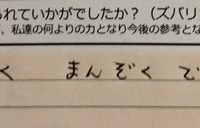 られていかがでしたか？（ズバリ
、私達の何よりの力となり今後の参考とな
く まんぞく で